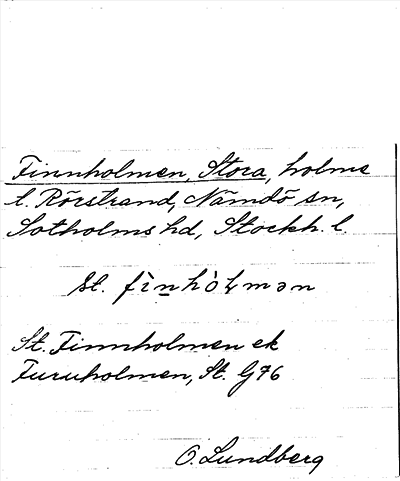 Finnholmen, Stora, holme
t. Rörstrand, Nämdö sn,
Sotholms hd, Stockh. l.
St. fìnhòɫmən
St. Finnholmen ek
Furuholmen, St. G76
O. Lundberg